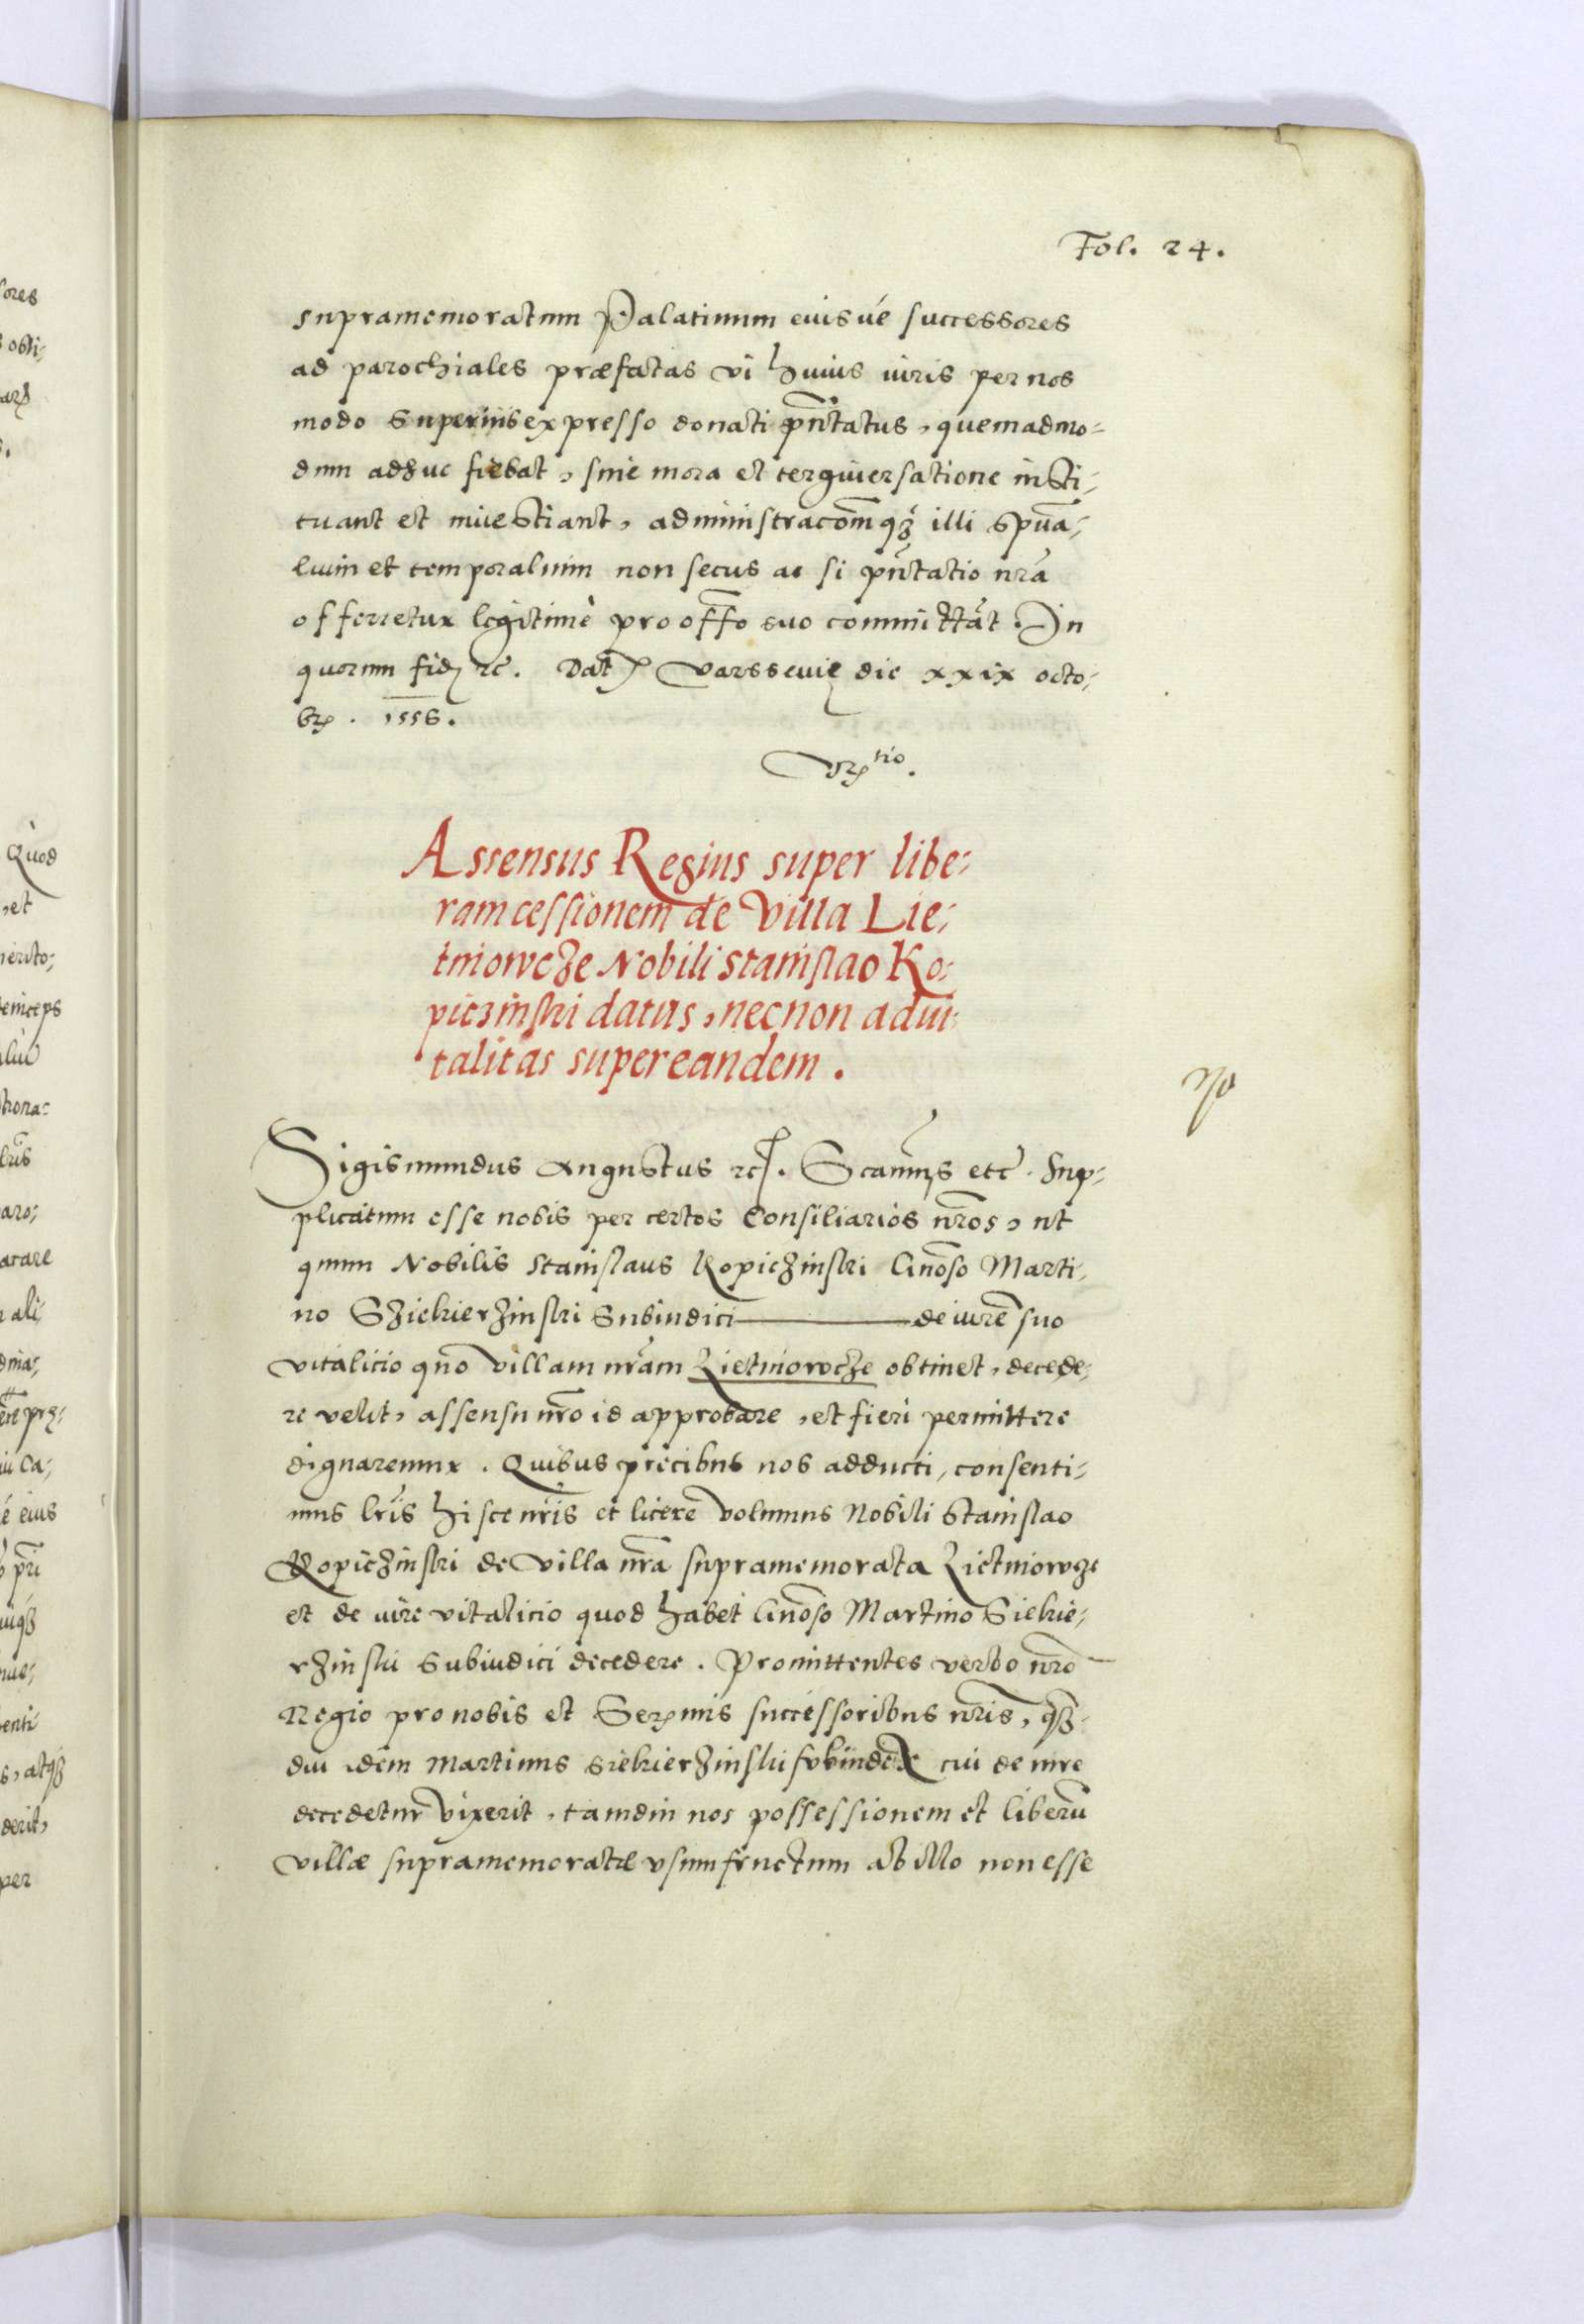 Fol. 24.
supramemoratum Palatinum eiusvé successores
ad parochiales præfatas vi huius iuris per nos
modo superius expresso donati pn̄tatus, quemadmo-
dum adhuc fiebat, sine mora et tergiuersatione insti-
tuant et inuestiant, administracōmq3 illi spūa-
lium et temporalium non secus ac si pn̄tatio nr̄a
offerretur legitimè pro offō suo committāt. In
quorum fidē rc̄. Dat Varsseuię die xxix octo-
br. 1556.
Assensus Regius super libe-
ram cessionem de Villa Lie-
tniowcze Nobili Stanislao Ko-
piczinski datus, necnon advi-
talitas super eandem.
Sigismundus Augustus rc. Scāmus etc̄. Sup-
plicatum esse nobis per certos Consiliarios nr̄os, ut
quum Nobilis Stanislaus Kopiczinski Gnōso Marti-
no Sziekierzinski Subiudici de iure suo
vitalicio quo villam nr̄am Lietniowcze obtinet, decede-
re velit, assensu nr̄o id approbare, et fieri permittere
dignaremur. Quibus precibus nos adducti, consenti-
mus lr̄is hisce nr̄is et licere volumus Nobili Stanislao
Kopiczinski de Villa nr̄a supramemorata Lietniowcze
et de iure vitalicio quod habet Gnōso Martino Siekie-
rzinski Subiudici decedere. Promittentes verbo nr̄o
Regio pro nobis et Sermis successoribus nr̄is, q3
diu idem Martinus Siekierzinski subiudex cui de iure
decedetur vixerit, tamdiu nos possessionem et liberū
villæ supramemoratæ vsumfructum ab illo non esse